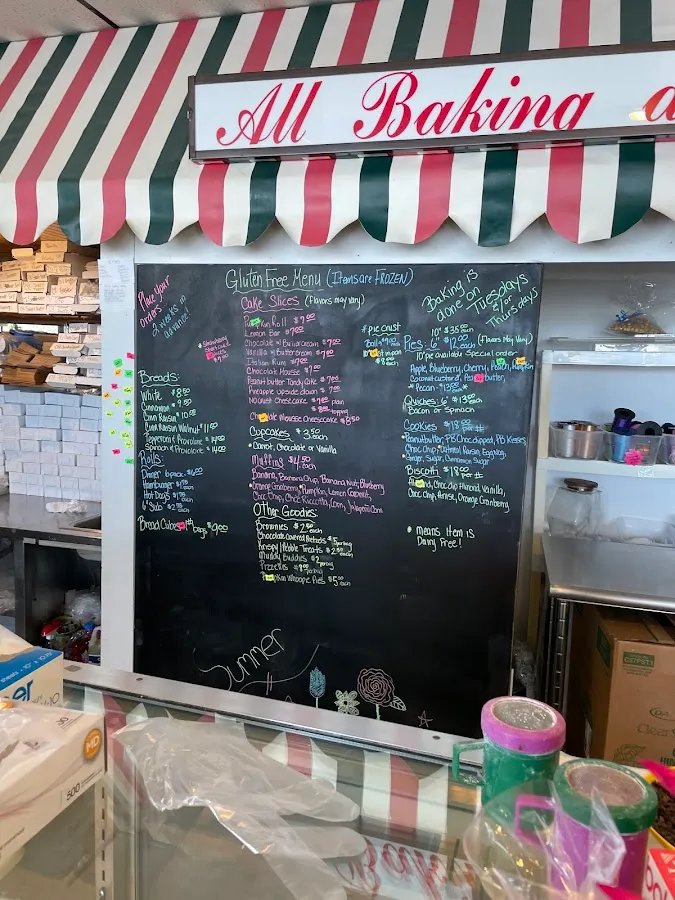 All Baking
Gluten Free Menu (Items are FROZEN)
Place Your
orders
2 weeks in
advance!
Baking is
done on Tuesdays
&/or
Thursdays
Cake Slices (flavors may vary)
Roll $7.00
Lemon Bar $7.00
Chocolate w/ Buttercream $7.00
Vanilla w/ Buttercream $7.00
Italian Rum $7.00
Chocolate Mousse $7.00
Peanut butter Tandy Cake $7.00
Pineapple upside down $7.00
NO CRUST Cheesecake $7.00 plain
$8.00 topping
Chocolate Mousse Cheesecake $8.50
Cupcakes $3.50 each
Carrot, Chocolate or Vanilla
Muffins $4.50 each
Banana, Banana Chip, Banana Nut, Blueberry
Orange Cranberry, Pumpkin, Lemon Coconut,
Choc Chip, Choc Ricotta, Corn, Jalapeno Corn
Other Goodies:
Brownies $2.50 each
Chocolate Covered Pretzels
Krispy/Pebble Treats $2.50 each
Muddy Buddies
Pizzelles
Pumpkin Whoopie Pies $5.00 each
Breads:
White $8.50
Cinnamon $9.50
Cinn Raisin $10.00
Cinn Raisin Walnut $11.00
Pepperoni & Provolone $14.00
Spinach & Provolone $14.00
Rolls:
Dinner 6 pack $6.00
Hamburger
Hot Dog
6" Sub
Bread Cubes
bags $9.00
* pie crust
Ball
10" $35.00
Pies: 6" $12.00 each (Flavors May Vary)
10" pie available Special order
Apple, Blueberry, Cherry, Peach, Pumpkin
Coconut custard, butter,
Pecan $13.00
Quiches: 6" $13.00 each
Bacon or Spinach
Cookies $18.00
Peanutbutter, PB Choc dipped, PB Kisses,
Choc Chip, Oatmeal Raisin, Eggnog,
Ginger, Sugar, Cinnamon Sugar
Biscotti $18.00 per #
Almond, Choc dip Almond, Vanilla,
Choc Chip, Anise, Orange Cranberry
* means item is
Dairy Free!
Summer
500